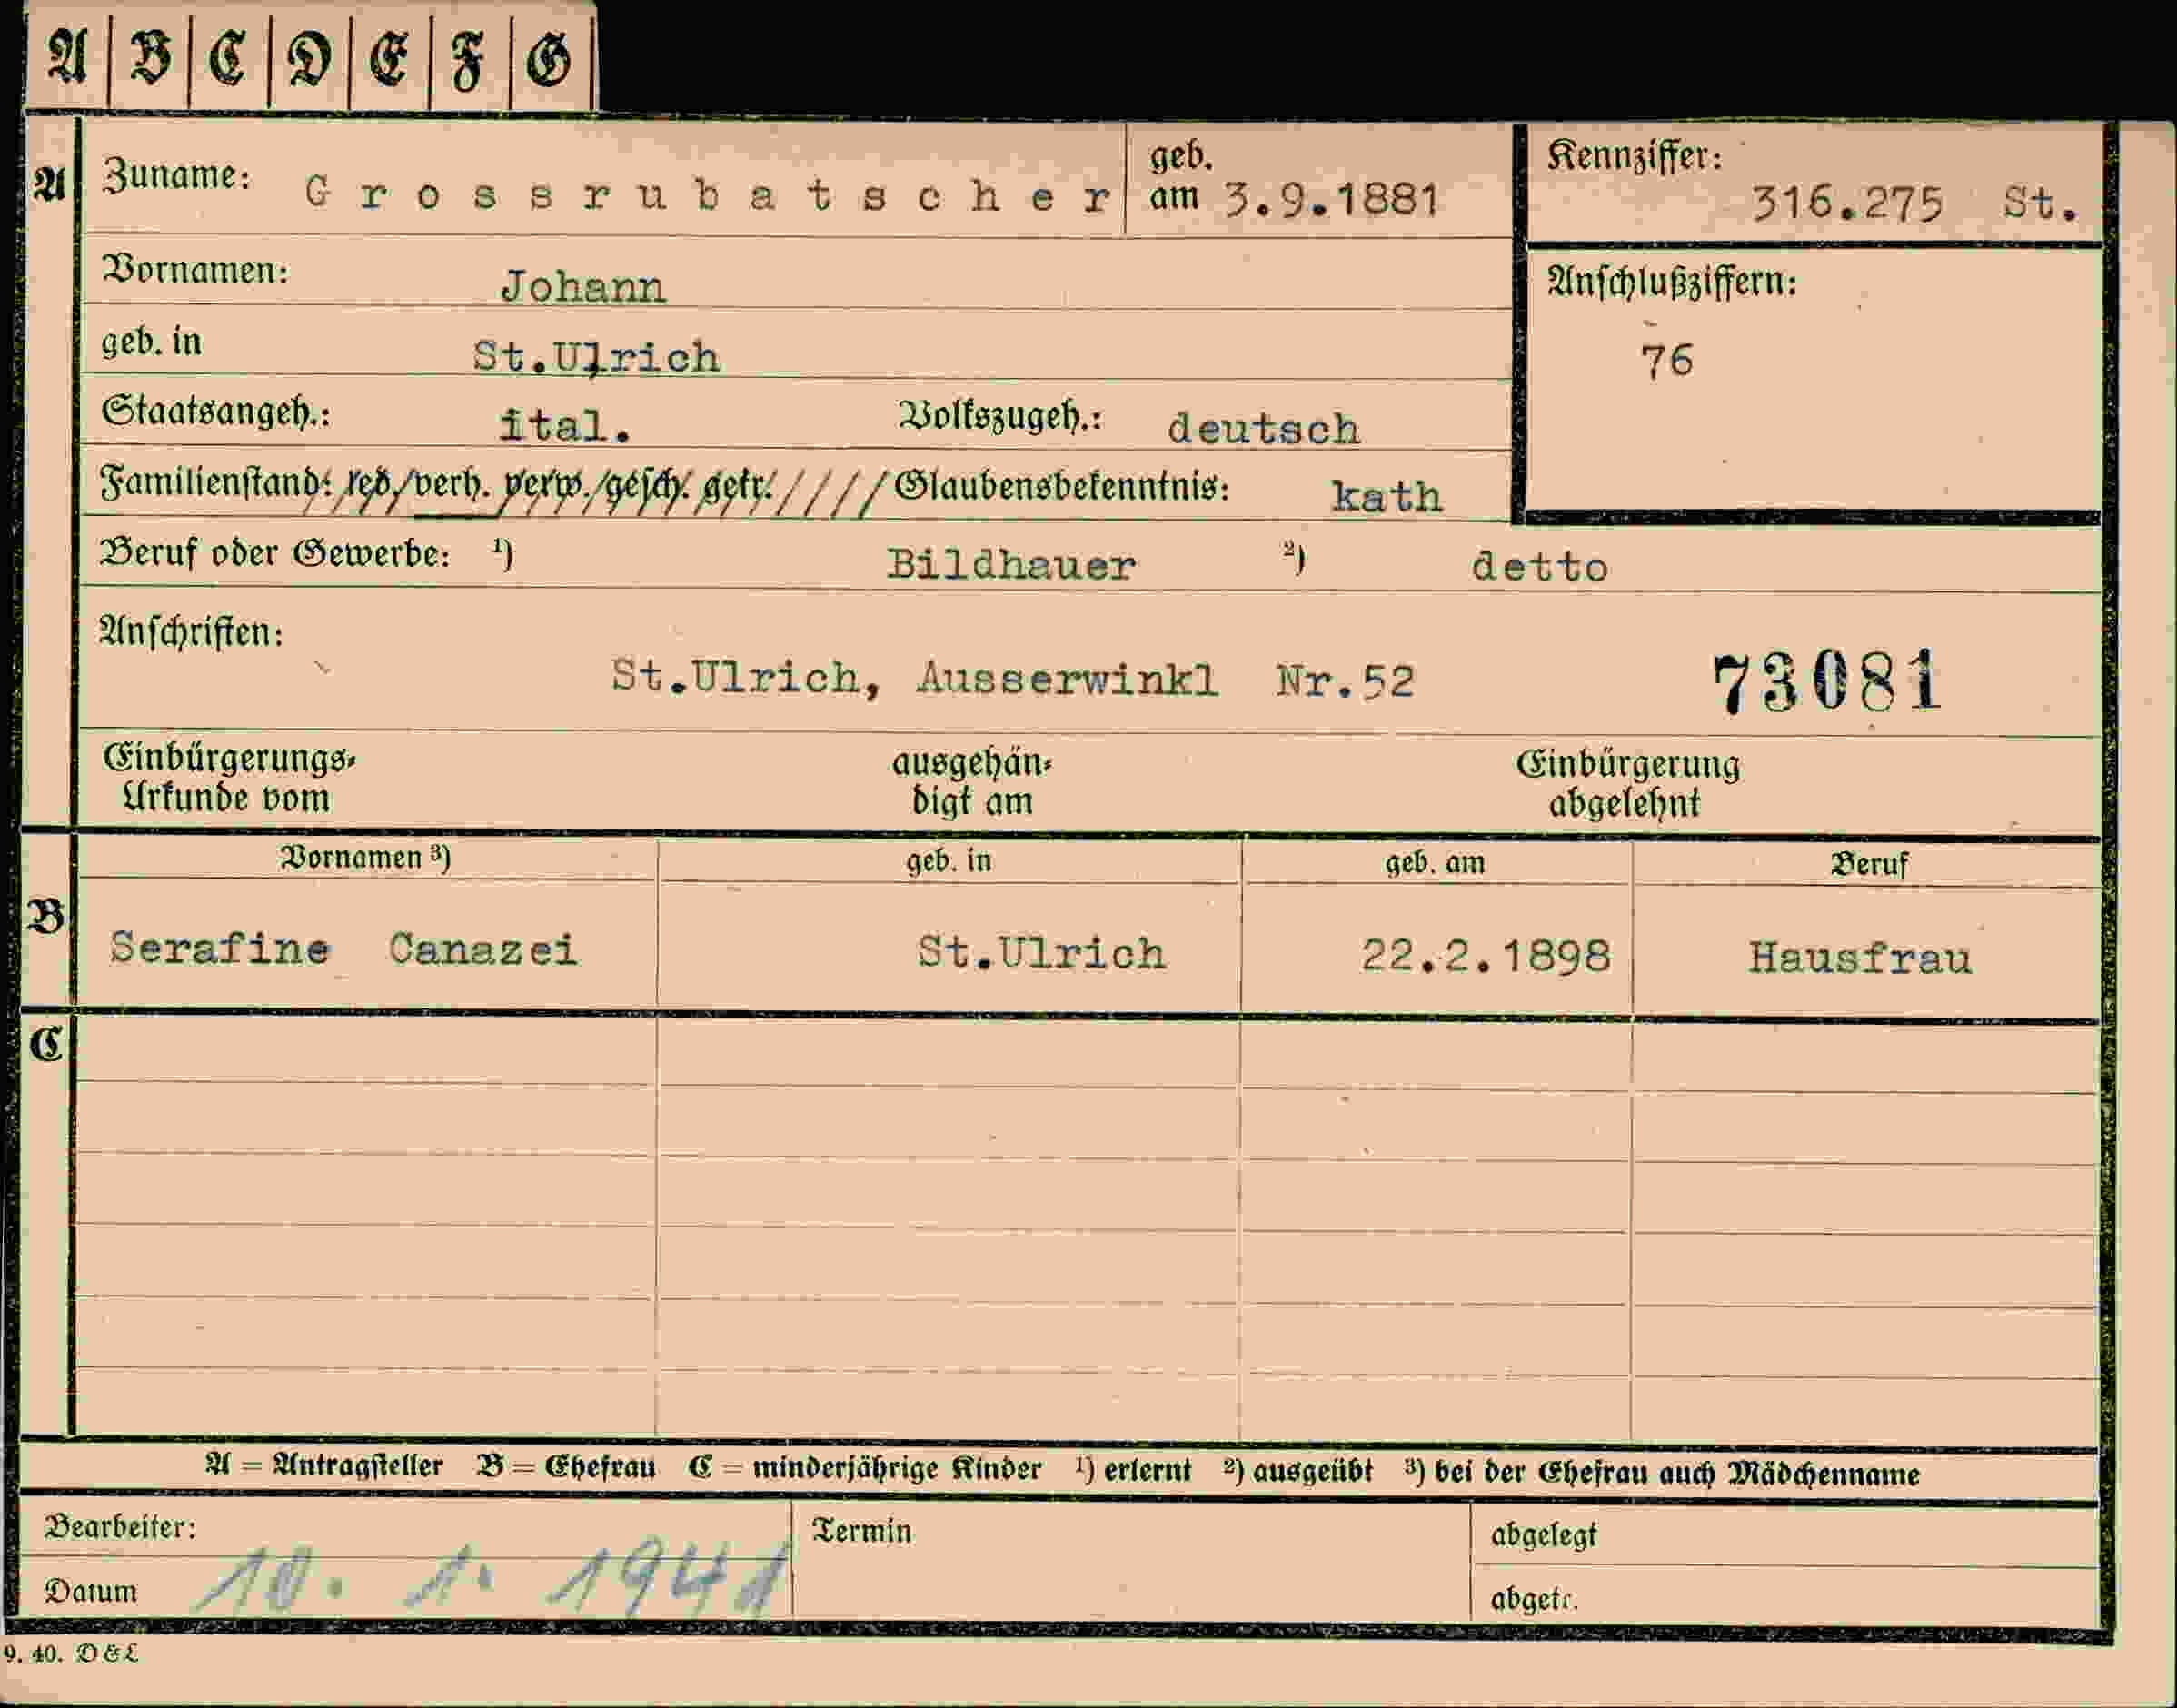 A B C D E F G
A Zuname: Grossrubatscher geb. am 3.9.1881 Kennziffer: 316.275 St.
Vornamen: Johann Anschlußziffern:
geb. in St.Ulrich 76
Staatsangeh.: ital. Volkszugeh.: deutsch
Familienstand: led. verh. verw. gesch. getr. Glaubensbekenntnis: kath
Beruf oder Gewerbe: ¹) Bildhauer ²) detto
Anschriften: St.Ulrich, Ausserwinkl Nr.52 73081
Einbürgerungs- ausgehän- Einbürgerung
Urkunde vom digt am abgelehnt
Vornamen ³) geb. in geb. am Beruf
B Serafine Canazei St.Ulrich 22.2.1898 Hausfrau
C
A = Antragsteller B = Ehefrau C = minderjährige Kinder ¹) erlernt ²) ausgeübt ³) bei der Ehefrau auch Mädchenname
Bearbeiter: Termin abgelegt
Datum 10. 1. 1941 abgetr.
9. 40. D&L